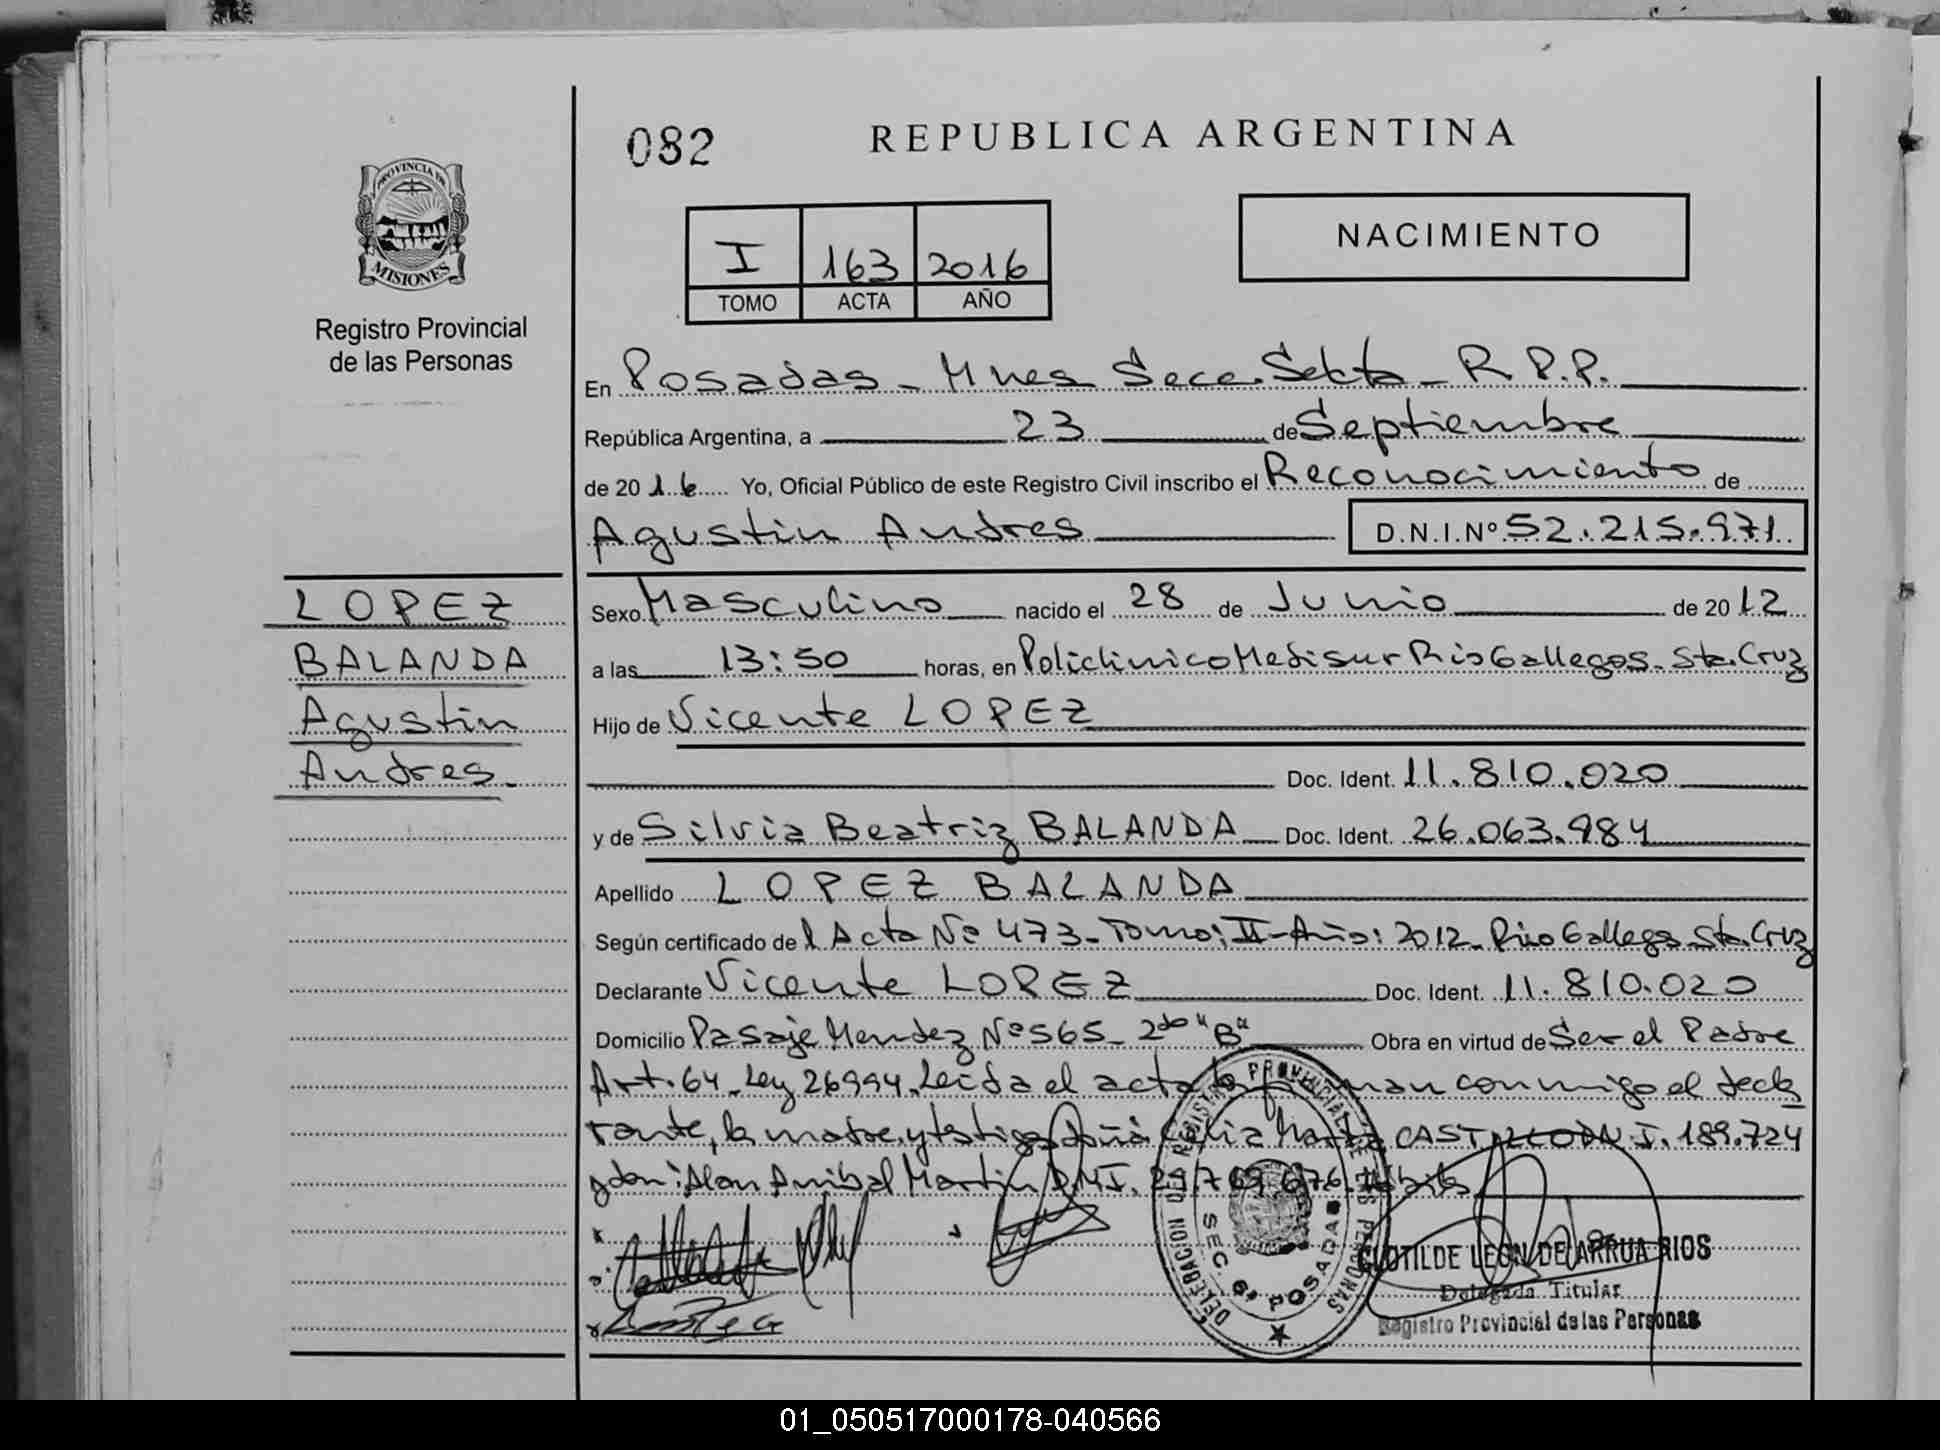 082
REPUBLICA ARGENTINA
PROVINCIA DE
MISIONES
Registro Provincial
de las Personas
I 163 2016
TOMO ACTA AÑO
NACIMIENTO
En Posadas - Mnes Secc. Sekta - R.P.P.
República Argentina, a 23 de Septiembre
de 2016 Yo, Oficial Público de este Registro Civil inscribo el Reconocimiento de
Agustin Andres D.N.I.Nº 52.215.971
LOPEZ
BALANDA
Agustin
Andres
Sexo Masculino nacido el 28 de Junio de 2012
a las 13:50 horas, en Policlinico Medisur Rio Gallegos - Sta. Cruz
Hijo de Vicente LOPEZ
Doc. Ident. 11.810.020
y de Silvia Beatriz BALANDA Doc. Ident. 26.063.984
Apellido LOPEZ BALANDA
Según certificado del Acta Nº 473 - Tomo: II - Año: 2012 - Rio Gallegos Sta. Cruz
Declarante Vicente LOPEZ Doc. Ident. 11.810.020
Domicilio Pasaje Mendez Nº 565 - 2do "B" Obra en virtud de Ser el Padre
Art. 64 - Ley 26994. Leida el acta la firman conmigo el decla
rante, la madre y testigos doña Marta CASTILLO DN.I. 189.724
y don: Alan Anibal Martin D.N.I.
DELEGACION DEL REGISTRO PROVINCIAL DE LAS PERSONAS
SEC. 6ª POSADAS
CLOTILDE LEON DE ARRUA RIOS
Delegada Titular
Registro Provincial de las Personas
01_050517000178-040566